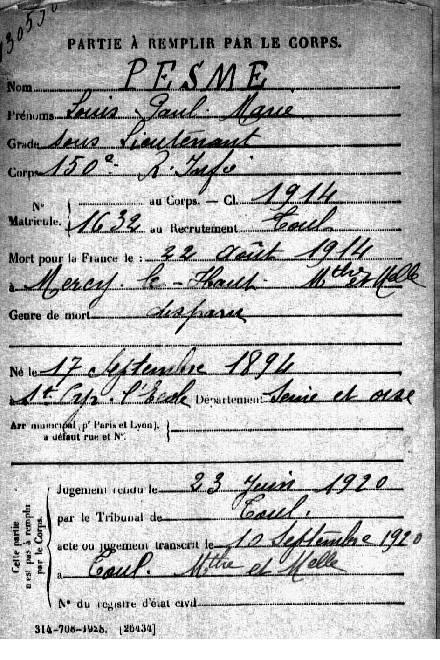 PARTIE À REMPLIR PAR LE CORPS.
Nom PESME
Prénoms Louis Paul Marie
Grade sous Lieutenant
Corps 150e R. Infie
N° Matricule. { au Corps. — Cl. 1914
1632 au Recrutement Toul
Mort pour la France le : 22 août 1914
à Mercy-le-Haut Mthe et Melle
Genre de mort disparu
Né le 17 Septembre 1894
à St Cyr l'Ecole Département Seine et oise
Arr municipal (pr Paris et Lyon), à défaut rue et N°. {
Cette partie n'est pas à remplir par le Corps.
Jugement rendu le 23 Juin 1920
par le Tribunal de Toul.
acte ou jugement transcrit le 10 Septembre 1920
à Toul. Mthe et Melle
N° du registre d'état civil
314-708-1928. [26434]